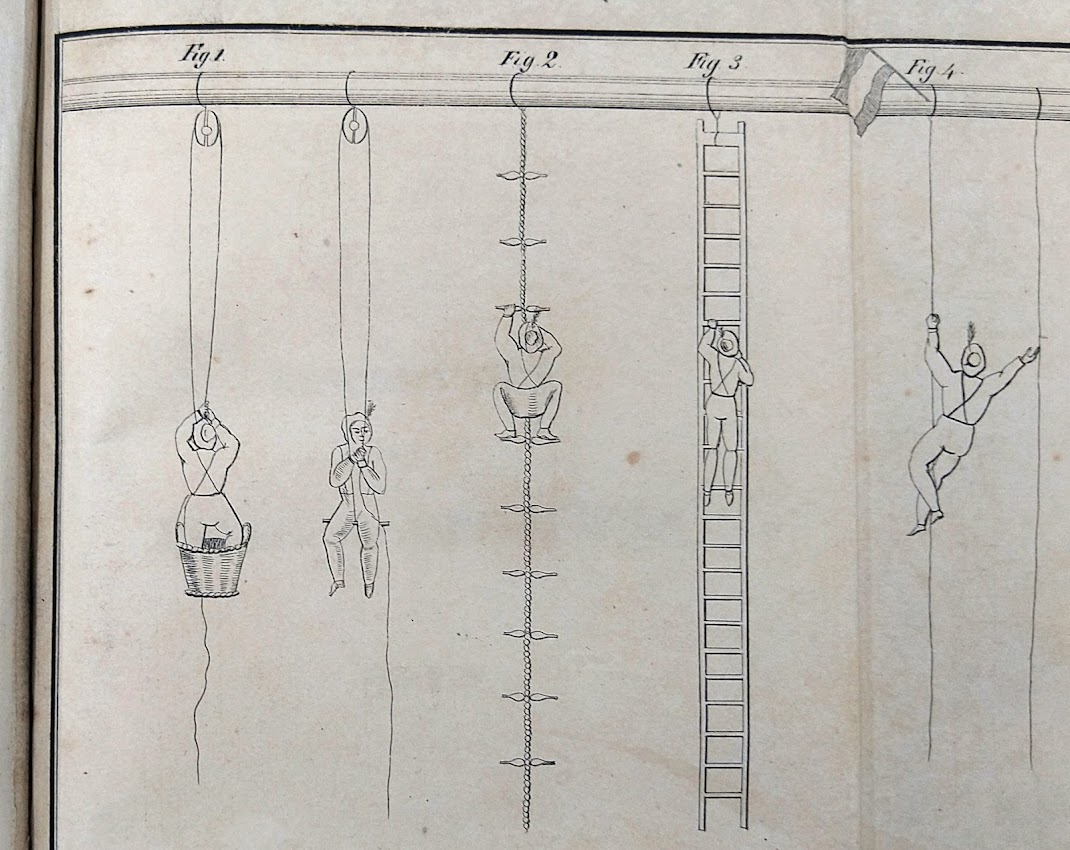 Fig 1.
Fig. 2.
Fig 3
Fig. 4.